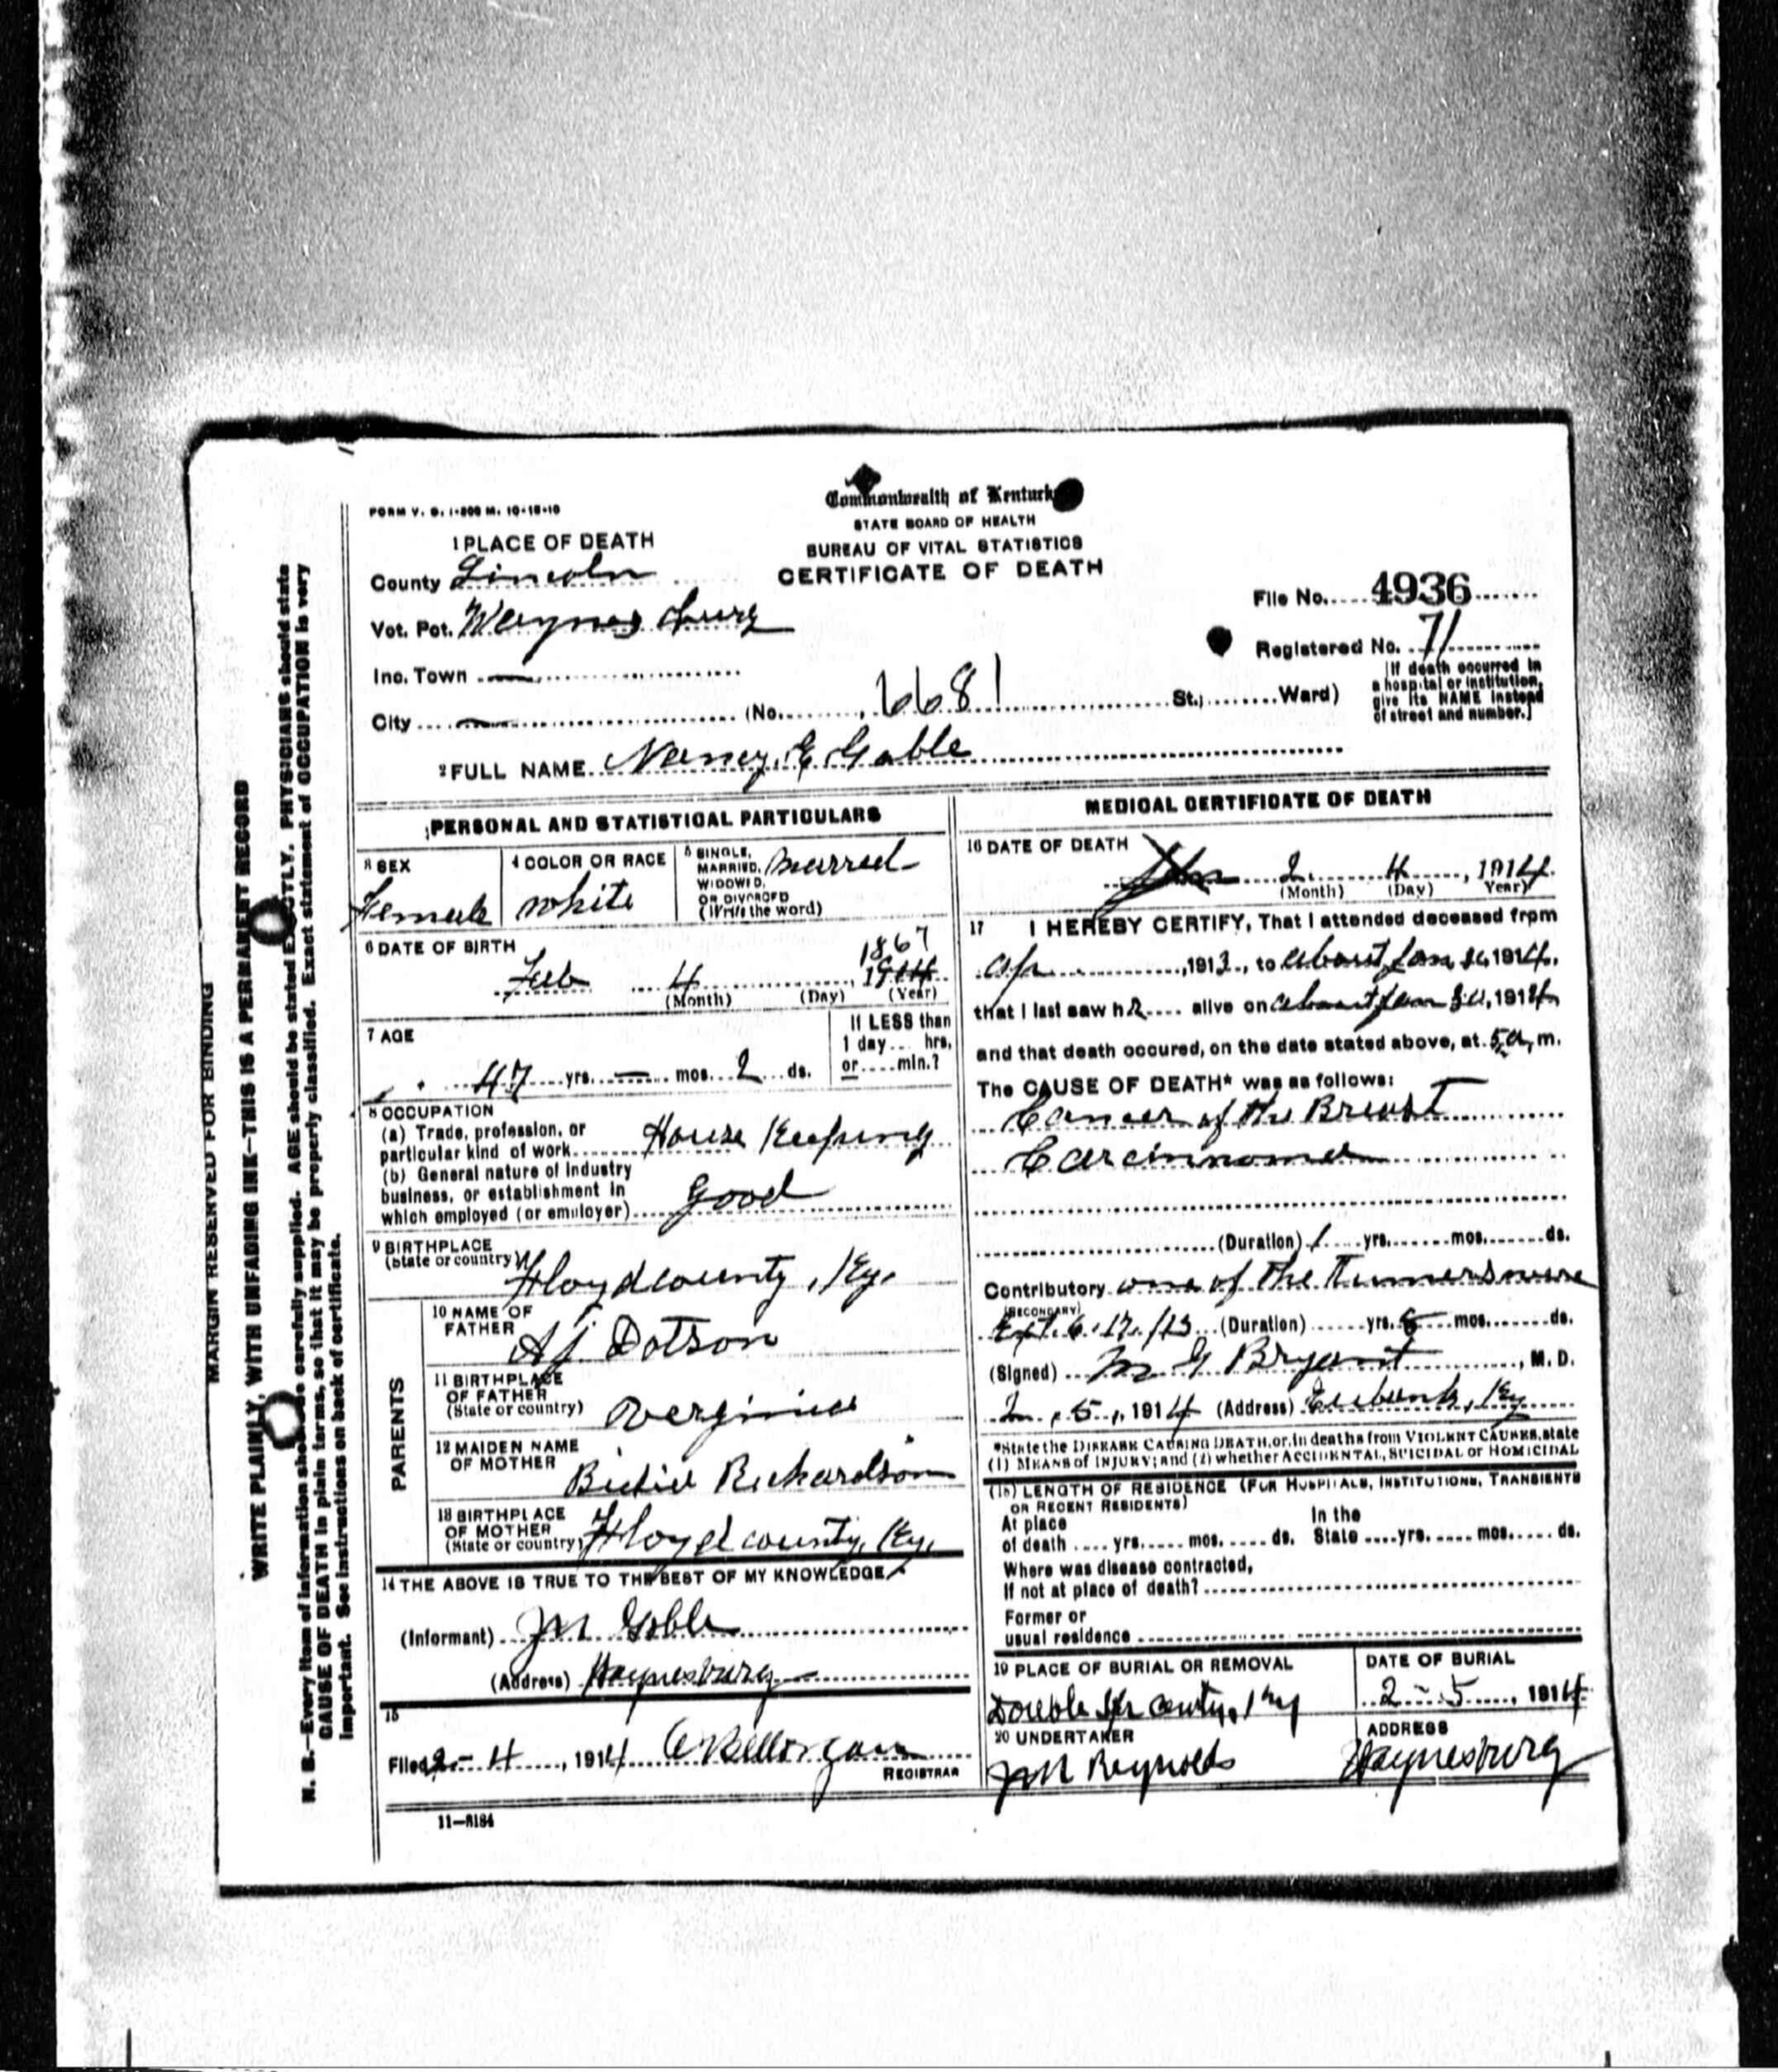 MARGIN RESERVED FOR BINDING
WRITE PLAINLY, WITH UNFADING INK—THIS IS A PERMANENT RECORD
N. B.—Every item of information should be carefully supplied. AGE should be stated EXACTLY. PHYSICIANS should state
CAUSE OF DEATH in plain terms, so that it may be properly classified. Exact statement of OCCUPATION is very
important. See instructions on back of certificate.
FORM V. S. 1-200 M. 10-18-10
Commonwealth of Kentucky
STATE BOARD OF HEALTH
BUREAU OF VITAL STATISTICS
CERTIFICATE OF DEATH
1 PLACE OF DEATH
County Lincoln
Vot. Pct. Waynesburg
Inc. Town
City (No. 6681 St.; Ward)
File No. 4936
Registered No. 71
[If death occurred in
a hospital or institution,
give its NAME instead
of street and number.]
2 FULL NAME Nancy E Goble
PERSONAL AND STATISTICAL PARTICULARS
3 SEX
Female
4 COLOR OR RACE
White
5 SINGLE,
MARRIED,
WIDOWED,
OR DIVORCED
(Write the word)
Married
6 DATE OF BIRTH
1867
Feb 4, 1914
(Month) (Day) (Year)
7 AGE
47 yrs. — mos. 2 ds.
If LESS than
1 day... hrs.
or.... min.?
8 OCCUPATION
(a) Trade, profession, or
particular kind of work House Keeping
(b) General nature of industry
business, or establishment in
which employed (or employer) Good
9 BIRTHPLACE
(State or country)
Floyd county, Ky.
PARENTS
10 NAME OF
FATHER
A J Dotson
11 BIRTHPLACE
OF FATHER
(State or country)
Verginia
12 MAIDEN NAME
OF MOTHER
Richardson
13 BIRTHPLACE
OF MOTHER
(State or country)
Floyd county, Ky.
14 THE ABOVE IS TRUE TO THE BEST OF MY KNOWLEDGE
(Informant) J M Goble
(Address) Waynesburg
15
Filed 2-4, 1914
REGISTRAR
11—8184
MEDICAL CERTIFICATE OF DEATH
16 DATE OF DEATH
Jan 2 4, 1914
(Month) (Day) Year)
17 I HEREBY CERTIFY, That I attended deceased from
, 1913, to about Jan, 1914,
that I last saw h alive on about Jan 30, 1914
and that death occured, on the date stated above, at 5 a, m.
The CAUSE OF DEATH* was as follows:
Cancer of the Breast
Carcinnoma
(Duration) 1 yrs. mos. ds.
Contributory one of the Tumers were
(SECONDARY)
Ext. 6.17./13 (Duration) yrs. 8 mos. ds.
(Signed) M G Bryant, M. D.
2, 5, 1914 (Address) Eubank, Ky
*State the DISEASE CAUSING DEATH, or, in deaths from VIOLENT CAUSES, state
(1) MEANS of INJURY; and (2) whether ACCIDENTAL, SUICIDAL or HOMICIDAL
(18) LENGTH OF RESIDENCE (FOR HOSPITALS, INSTITUTIONS, TRANSIENTS
OR RECENT RESIDENTS)
At place In the
of death .... yrs. .... mos. .... ds. State .... yrs. .... mos. .... ds.
Where was disease contracted,
If not at place of death?
Former or
usual residence
19 PLACE OF BURIAL OR REMOVAL
Double Ky
DATE OF BURIAL
2-5, 1914
20 UNDERTAKER
J M Reynolds
ADDRESS
Waynesburg